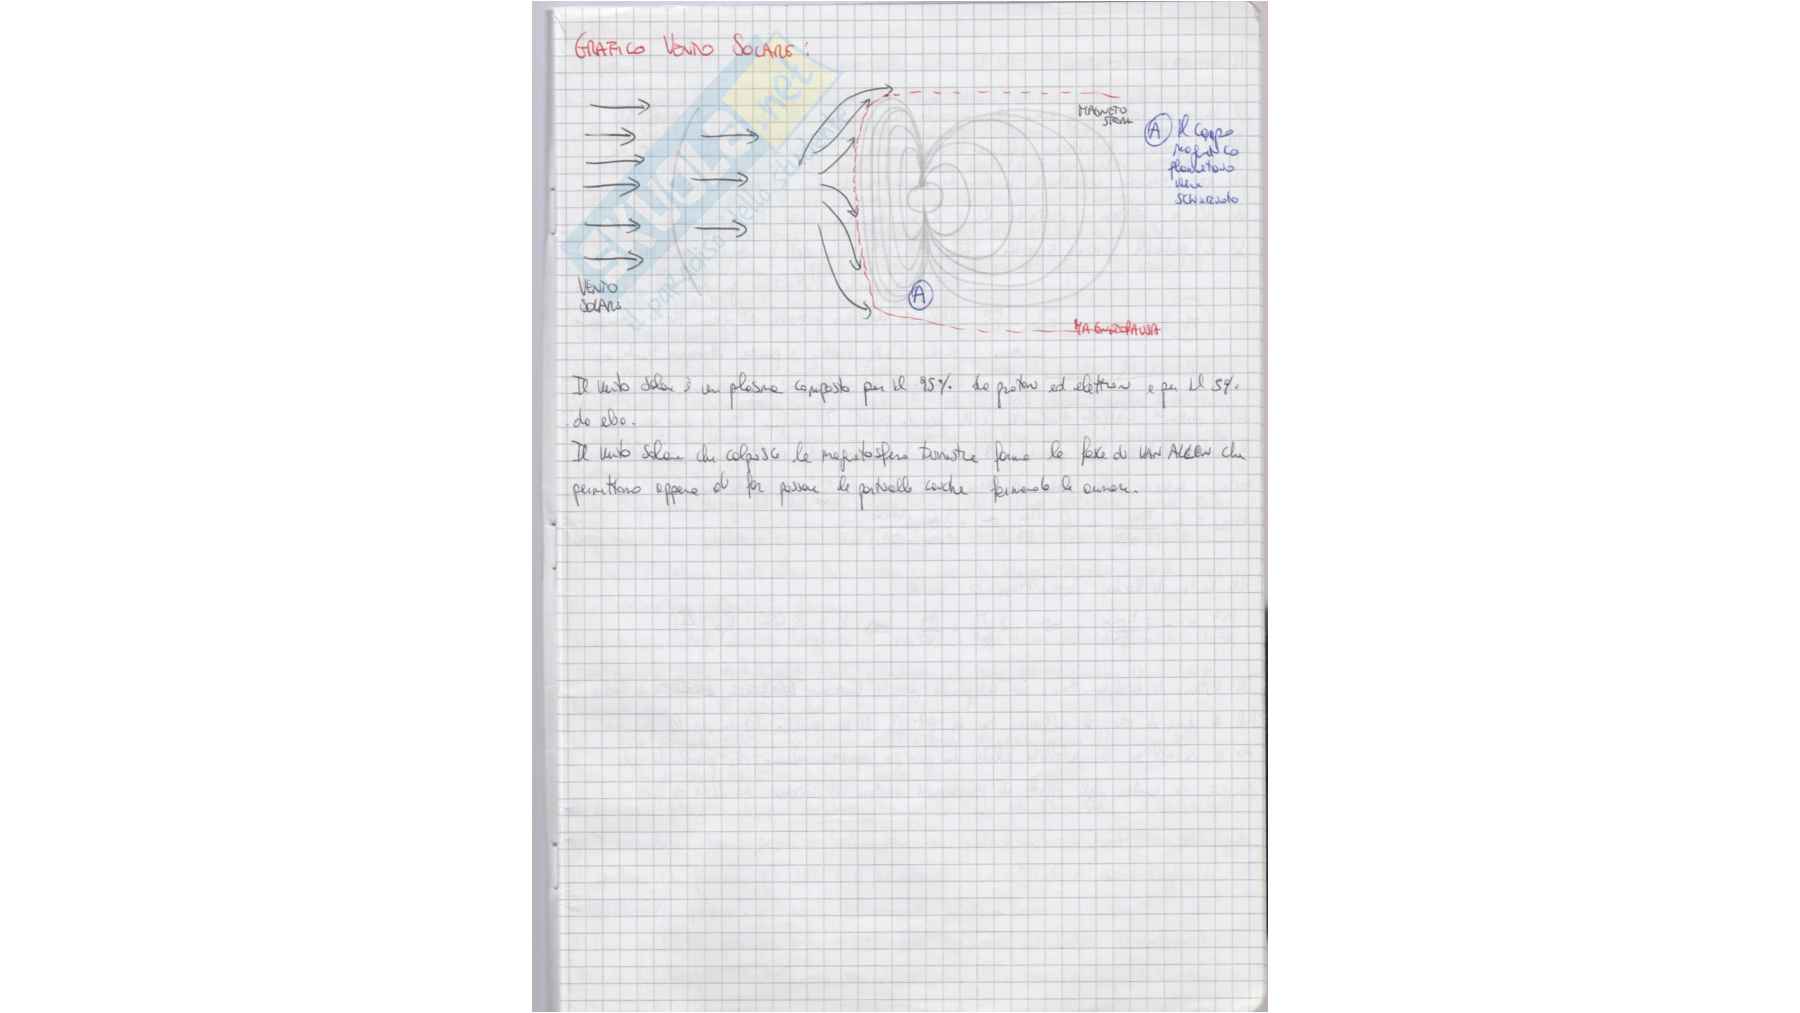 GRAFICO VENTO SOLARE:
SKUOLA.net
il paradiso dello
MAGNETO
SFERA
A Il campo
magnetico
planetario
viene
schiacciato
VENTO
SOLARE
A
MAGNETOPAUSA
Il vento solare è un plasma composto per il 95% da protoni ed elettroni e per il 5%
da elio.
Il vento solare che colpisce la magnetosfera terrestre forma le fasce di VAN ALLEN che
permettono appena di far passare le particelle cariche formando le aurore.